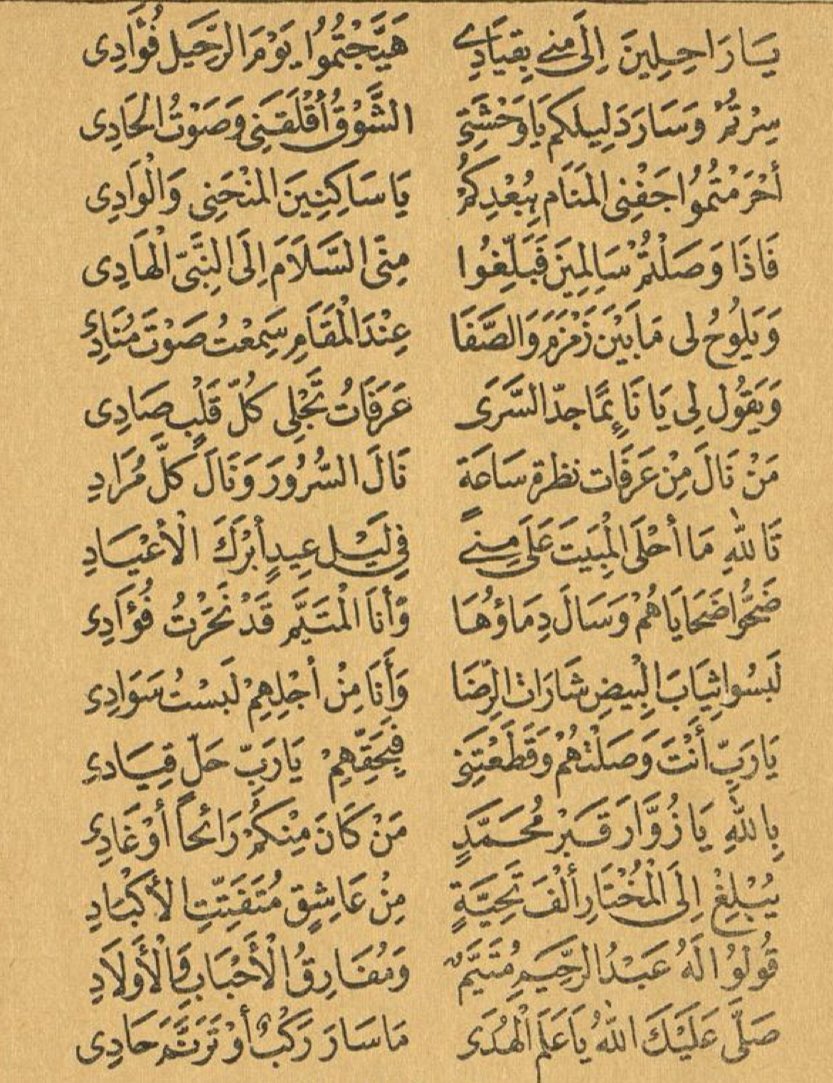 يَا رَاحِلِينَ إِلَى مِنىً بِقِيَادِي هَيَّجْتُمُوا يَوْمَ الرَّحِيل فُؤَادِى
سِرْتُمْ وَسَارَ دَلِيلكم يَا وَحْشَتِي الشَّوْقُ أَقْلَقَنِى وَصَوْتُ الحَادِى
أَحْرَمْتُمُوا جَفْنِى المَنَام بِبُعْدِكُمْ يَا سَاكِنِينَ المُنْحَنِى وَالْوَادِى
فَاذَا وَصَلْتُمْ سَالِمِينَ فَبَلِّغُوا مِنِّى السَّلَامَ اِلَى النَّبِّىِ الْهَادِى
وَيَلُوحُ لى مَا بَيْنَ زَمْزَمَ وَالصَّفَا عِنْدَ الْمَقَامِ سَمِعْتُ صَوْتَ مُنَادِي
وَيَقُول لِى يَا نَائِمًا جدّ السَّرَى عَرَفَاتُ تَجْلِى كُلَّ قَلْبٍ صَادِى
مَنْ نَالَ مِنْ عَرَفَات نظرة سَاعَةً نَالَ السُّرُورَ وَنَالَ كلَّ مُرَادِ
تَاللهِ مَا أحْلَى الْمَبِيَتَ عَلَى مِنىً فِى لَيْلِ عِيدٍ أَبْرَكَ الْأَعْيَادِ
ضَحُّوا ضَحَايَاهُمْ وَسَالَ دِمَاؤُهَا وَأَنَا الْمُتَيَّم قَدْ نَحَرْتُ فُؤَادِى
لَبَسُوا ثِيَابَ الْبِيضِ شَارَات الرِّضَا وَأَنَا مِنْ أَجْلِهِمْ لَبَسْتُ سَوَادِى
يَا رَبِّ أَنْتَ وَصَلْتَهُمْ وَقَطَعْتَنِى فَبِحَقِّهِمْ يَا رَبِّ حَلّ قِيَادِى
بِاللهِ يَا زُوَّارَ قَبْرِ مُحَمَّدٍ مَنْ كَانَ مِنْكُمْ رَائحًا أَوْ غَادِى
يُبْلِغْ اِلَى الْمُخْتَارِ أَلْفَ تَحِيَّةٍ مِنْ عَاشِقٍ مُتَفَتِّتِ الأَكْبَادِ
قُولُوا لَهُ عَبْدُ الرَّحِيمِ مُتَيَّمٌ وَمُفَارِقُ الْأَحْبَابِ وَالْأَوْلَادِ
صَلَّى عَلَيْكَ اللهُ يَا عَلَمَ الْهُدَى مَا سَارَ رَكْبٌ أَوْ تَرَنَّمَ حَادِى